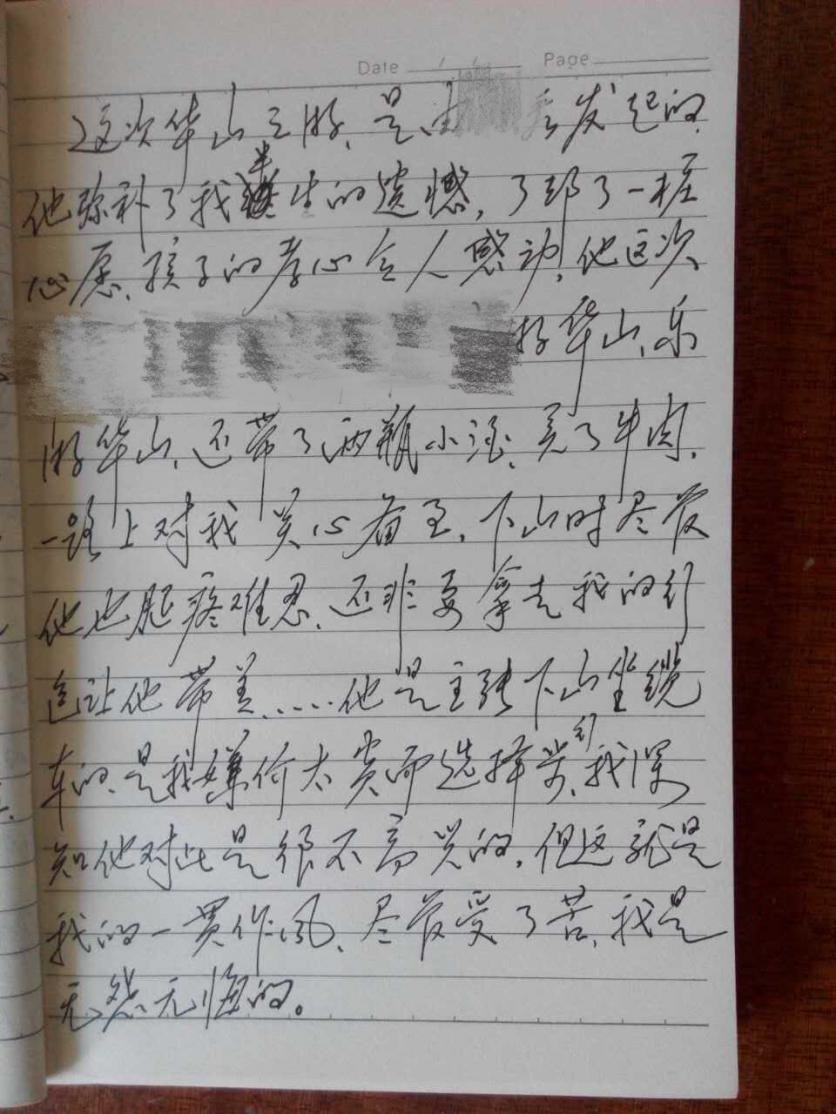 Date Page
这次华山之游、是由 发起的、
他弥补了我半生的遗憾，了却了一桩
心愿、孩子的孝心令人感动，他这次
华山、乐
游华山、还带了两瓶小酒、买了牛肉、
一路上对我关心备至，下山时尽管
他也腿疼难忍、还非要拿走我的行
包让他带着……他是主张下山坐缆
车的、是我嫌价太贵而选择步行、我深
知他对此是很不高兴的，但这就是
我的一贯作风、尽管受了苦、我是
无怨无悔的。